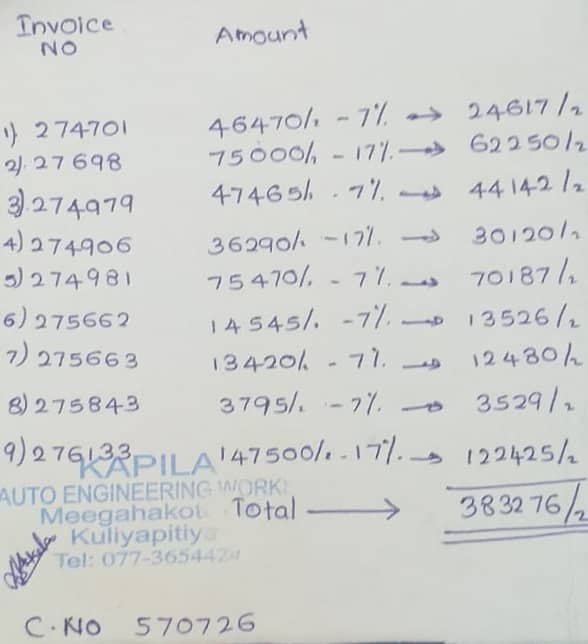 Invoice NO Amount
1) 274701 46470/= - 7% → 24617/=
2). 27698 75000/= - 17%. → 62250/=
3) 274979 47465/= - 7% → 44142/=
4) 274906 36290/= - 17%. → 30120/=
5) 274981 75470/= - 7% → 70187/=
6) 275662 14545/= - 7% → 13526/=
7) 275663 13420/= - 7%. → 12480/=
8) 275843 3795/= - 7%. → 3529/=
9) 276133 147500/= - 17% → 122425/=
KAPILA
AUTO ENGINEERING WORK
Meegahakot
Total → 383276/=
Kuliyapitiy
Tel: 077-3654424
C. No 570726